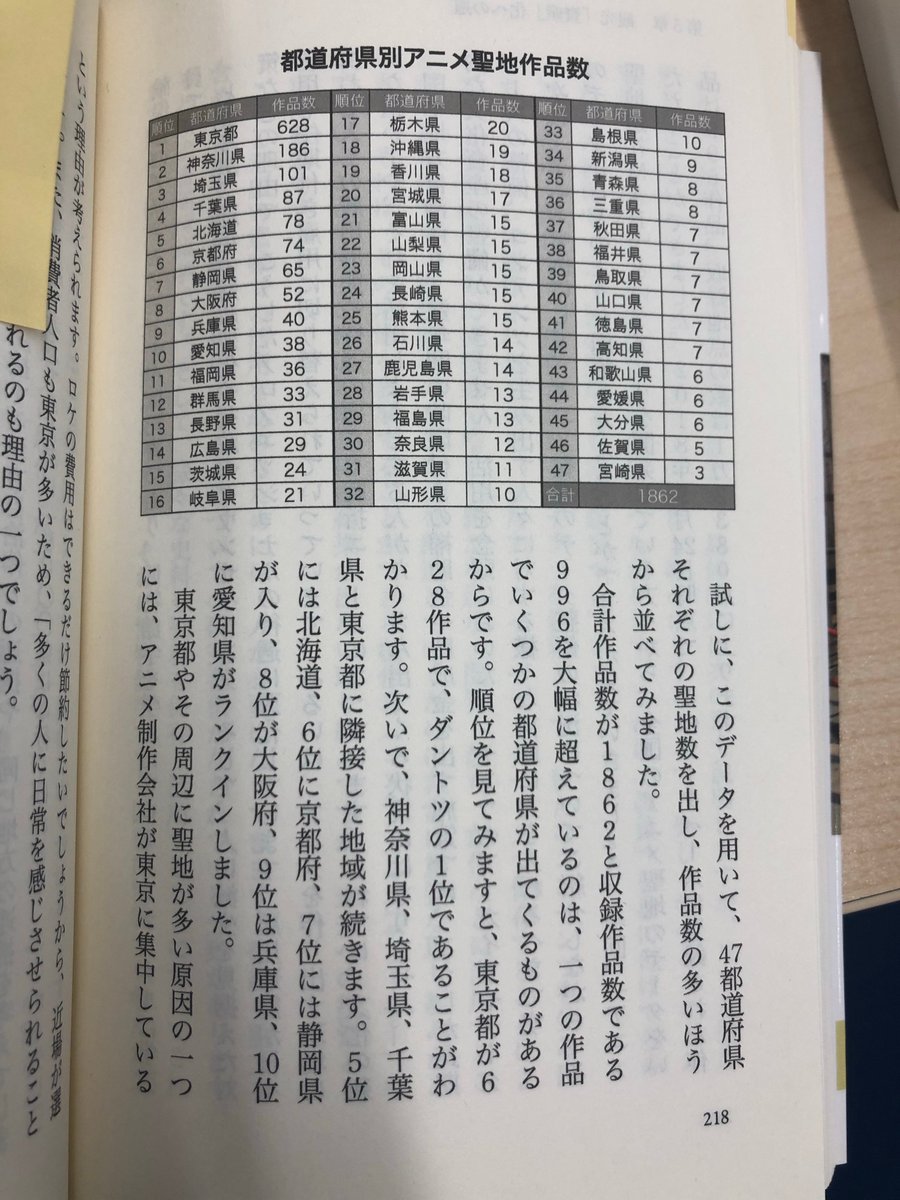 都道府県別アニメ聖地作品数
順位 都道府県 作品数 順位 都道府県 作品数 順位 都道府県 作品数
1 東京都 628 17 栃木県 20 33 島根県 10
2 神奈川県 186 18 沖縄県 19 34 新潟県 9
3 埼玉県 101 19 香川県 18 35 青森県 8
4 千葉県 87 20 宮城県 17 36 三重県 8
5 北海道 78 21 富山県 15 37 秋田県 7
6 京都府 74 22 山梨県 15 38 福井県 7
7 静岡県 65 23 岡山県 15 39 鳥取県 7
8 大阪府 52 24 長崎県 15 40 山口県 7
9 兵庫県 40 25 熊本県 15 41 徳島県 7
10 愛知県 38 26 石川県 14 42 高知県 7
11 福岡県 36 27 鹿児島県 14 43 和歌山県 6
12 群馬県 33 28 岩手県 13 44 愛媛県 6
13 長野県 31 29 福島県 13 45 大分県 6
14 広島県 29 30 奈良県 12 46 佐賀県 5
15 茨城県 24 31 滋賀県 11 47 宮崎県 3
16 岐阜県 21 32 山形県 10 合計 1862
試しに、このデータを用いて、47都道府県
それぞれの聖地数を出し、作品数の多いほう
から並べてみました。
合計作品数が1862と収録作品数である
996を大幅に超えているのは、一つの作品
でいくつかの都道府県が出てくるものがある
からです。順位を見てみますと、東京都が6
28作品で、ダントツの1位であることがわ
かります。次いで、神奈川県、埼玉県、千葉
県と東京都に隣接した地域が続きます。5位
には北海道、6位に京都府、7位には静岡県
が入り、8位が大阪府、9位は兵庫県、10位
に愛知県がランクインしました。
東京都やその周辺に聖地が多い原因の一つ
には、アニメ制作会社が東京に集中している
という理由が考えられます。ロケの費用はできるだけ節約したいでしょうから、近場が選
また、消費者人口も東京が多いため、「多くの人に日常を感じさせられること
れるのも理由の一つでしょう。
218